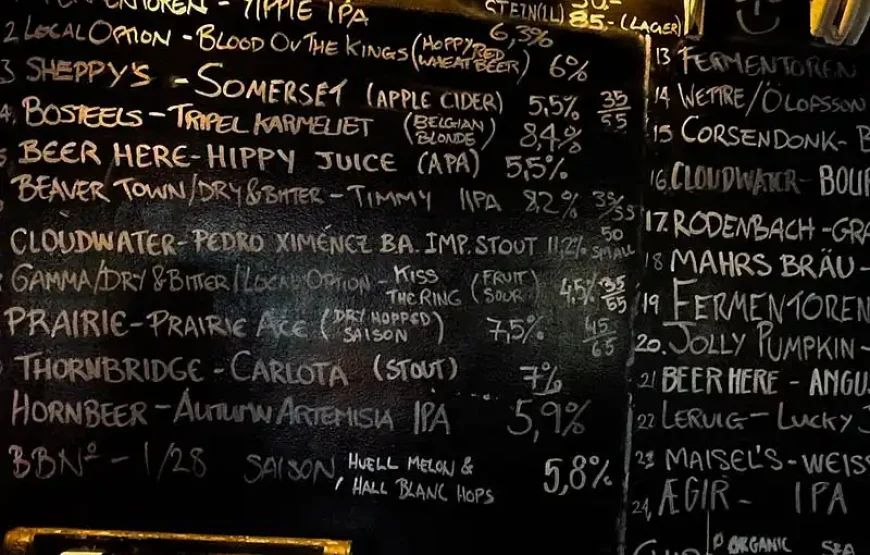 - YIPPIE IPA 6,3%
STEIN(1L) 85,- (LAGER)
2 LOCAL OPTION - BLOOD OV THE KINGS (HOPPY RED WHEAT BEER) 6%
3 SHEPPY'S - SOMERSET (APPLE CIDER) 5,5% 35/55
4. BOSTEELS - TRIPEL KARMELIET (BELGIAN BLONDE) 8,4%
BEER HERE - HIPPY JUICE (APA) 5,5%
BEAVER TOWN/DRY & BITTER - TIMMY IIPA 8,2% 35/55
CLOUDWATER - PEDRO XIMÉNEZ BA. IMP. STOUT 11,2% 50 SMALL
GAMMA/DRY & BITTER/LOCAL OPTION - KISS THE RING (FRUIT SOUR) 4,5% 35/55
PRAIRIE - PRAIRIE ACE (DRY HOPPED SAISON) 7,5% 45/65
THORNBRIDGE - CARLOTA (STOUT) 7%
HORNBEER - AUTUMN ARTEMISIA IPA 5,9%
BBNº - 1/28 SAISON HUELL MELON & HALL BLANC HOPS 5,8%
13 FERMENTOREN
14 WETTRE/ÖLOFSSON
15 CORSENDONK -
16. CLOUDWATER -
17. RODENBACH -
18 MAHRS BRÄU -
19 FERMENTOREN
20. JOLLY PUMPKIN -
21 BEER HERE -
22 LERVIG - LUCKY
23 MAISEL'S - WEISS
24, ÆGIR - IPA
ORGANIC